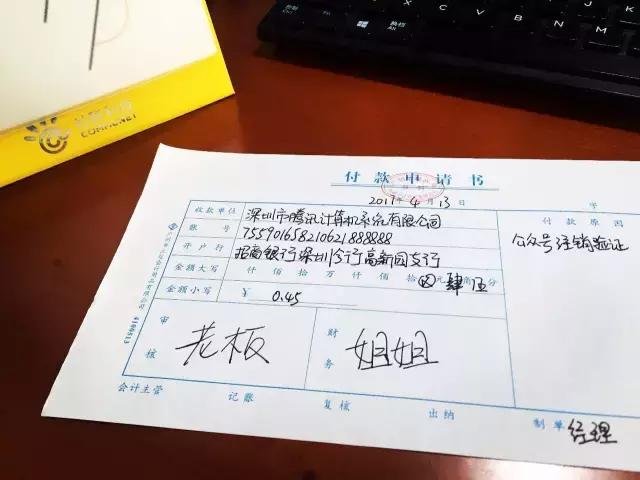 COMMCNET
付款申请书
2017年4月13日 字
收款单位 深圳市腾讯计算机系统有限公司 付款原因
账号 75590165821062188888 公众号注销验证
开户行 招商银行深圳分行高新园支行
金额大写 仟佰拾万仟佰拾⊗元肆角伍分
金额小写 ¥ 0.45
审核 老板 财务 姐姐
会计主管 记账 复核 出纳 制单 经理
4100513